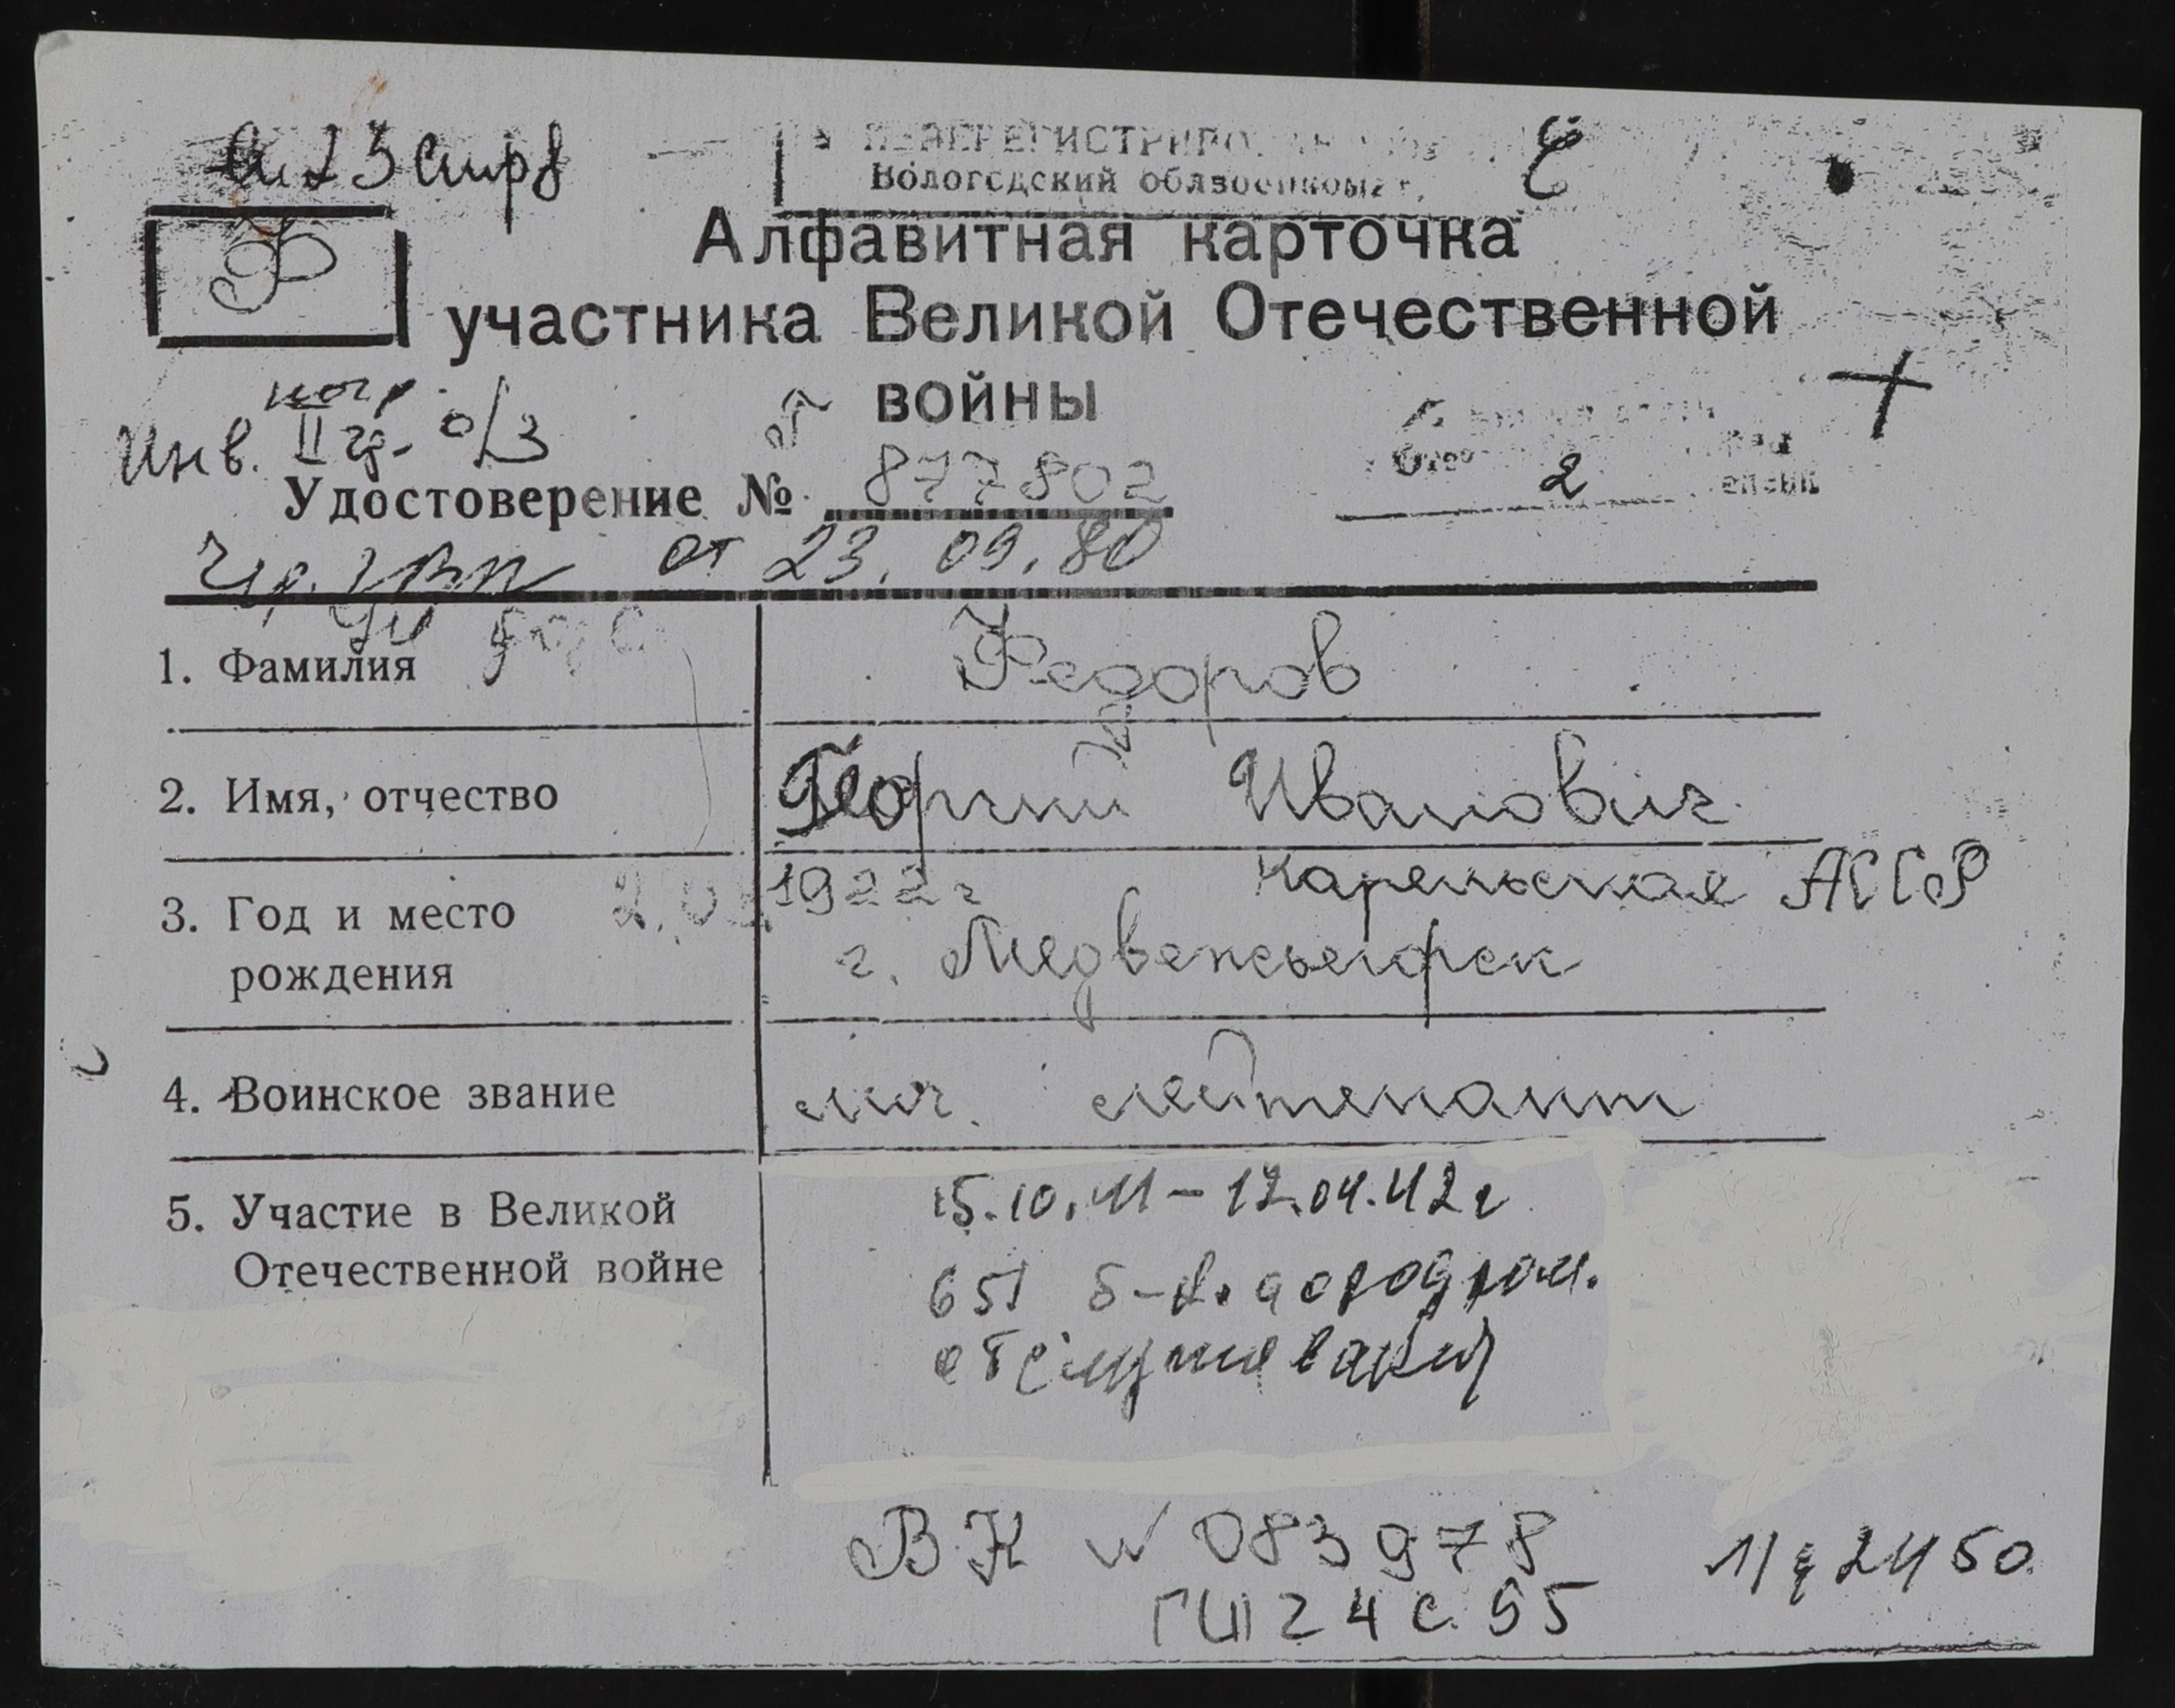 Вологодский облвоенкомат
Ф
Алфавитная карточка
участника Великой Отечественной
войны
Инв. II гр. о/з
2
Удостоверение № 877802
от 23.09.80
1. Фамилия Федоров
2. Имя, отчество Георгий Иванович
3. Год и место 1922г Карельская АССР
рождения г. Медвежьегорск
4. Воинское звание мл. лейтенант
5. Участие в Великой 15.10.41-12.04.42г
Отечественной войне 651 б-н аэродром.
обслуживания
ВК № 083978
ГШ 24 с. 55